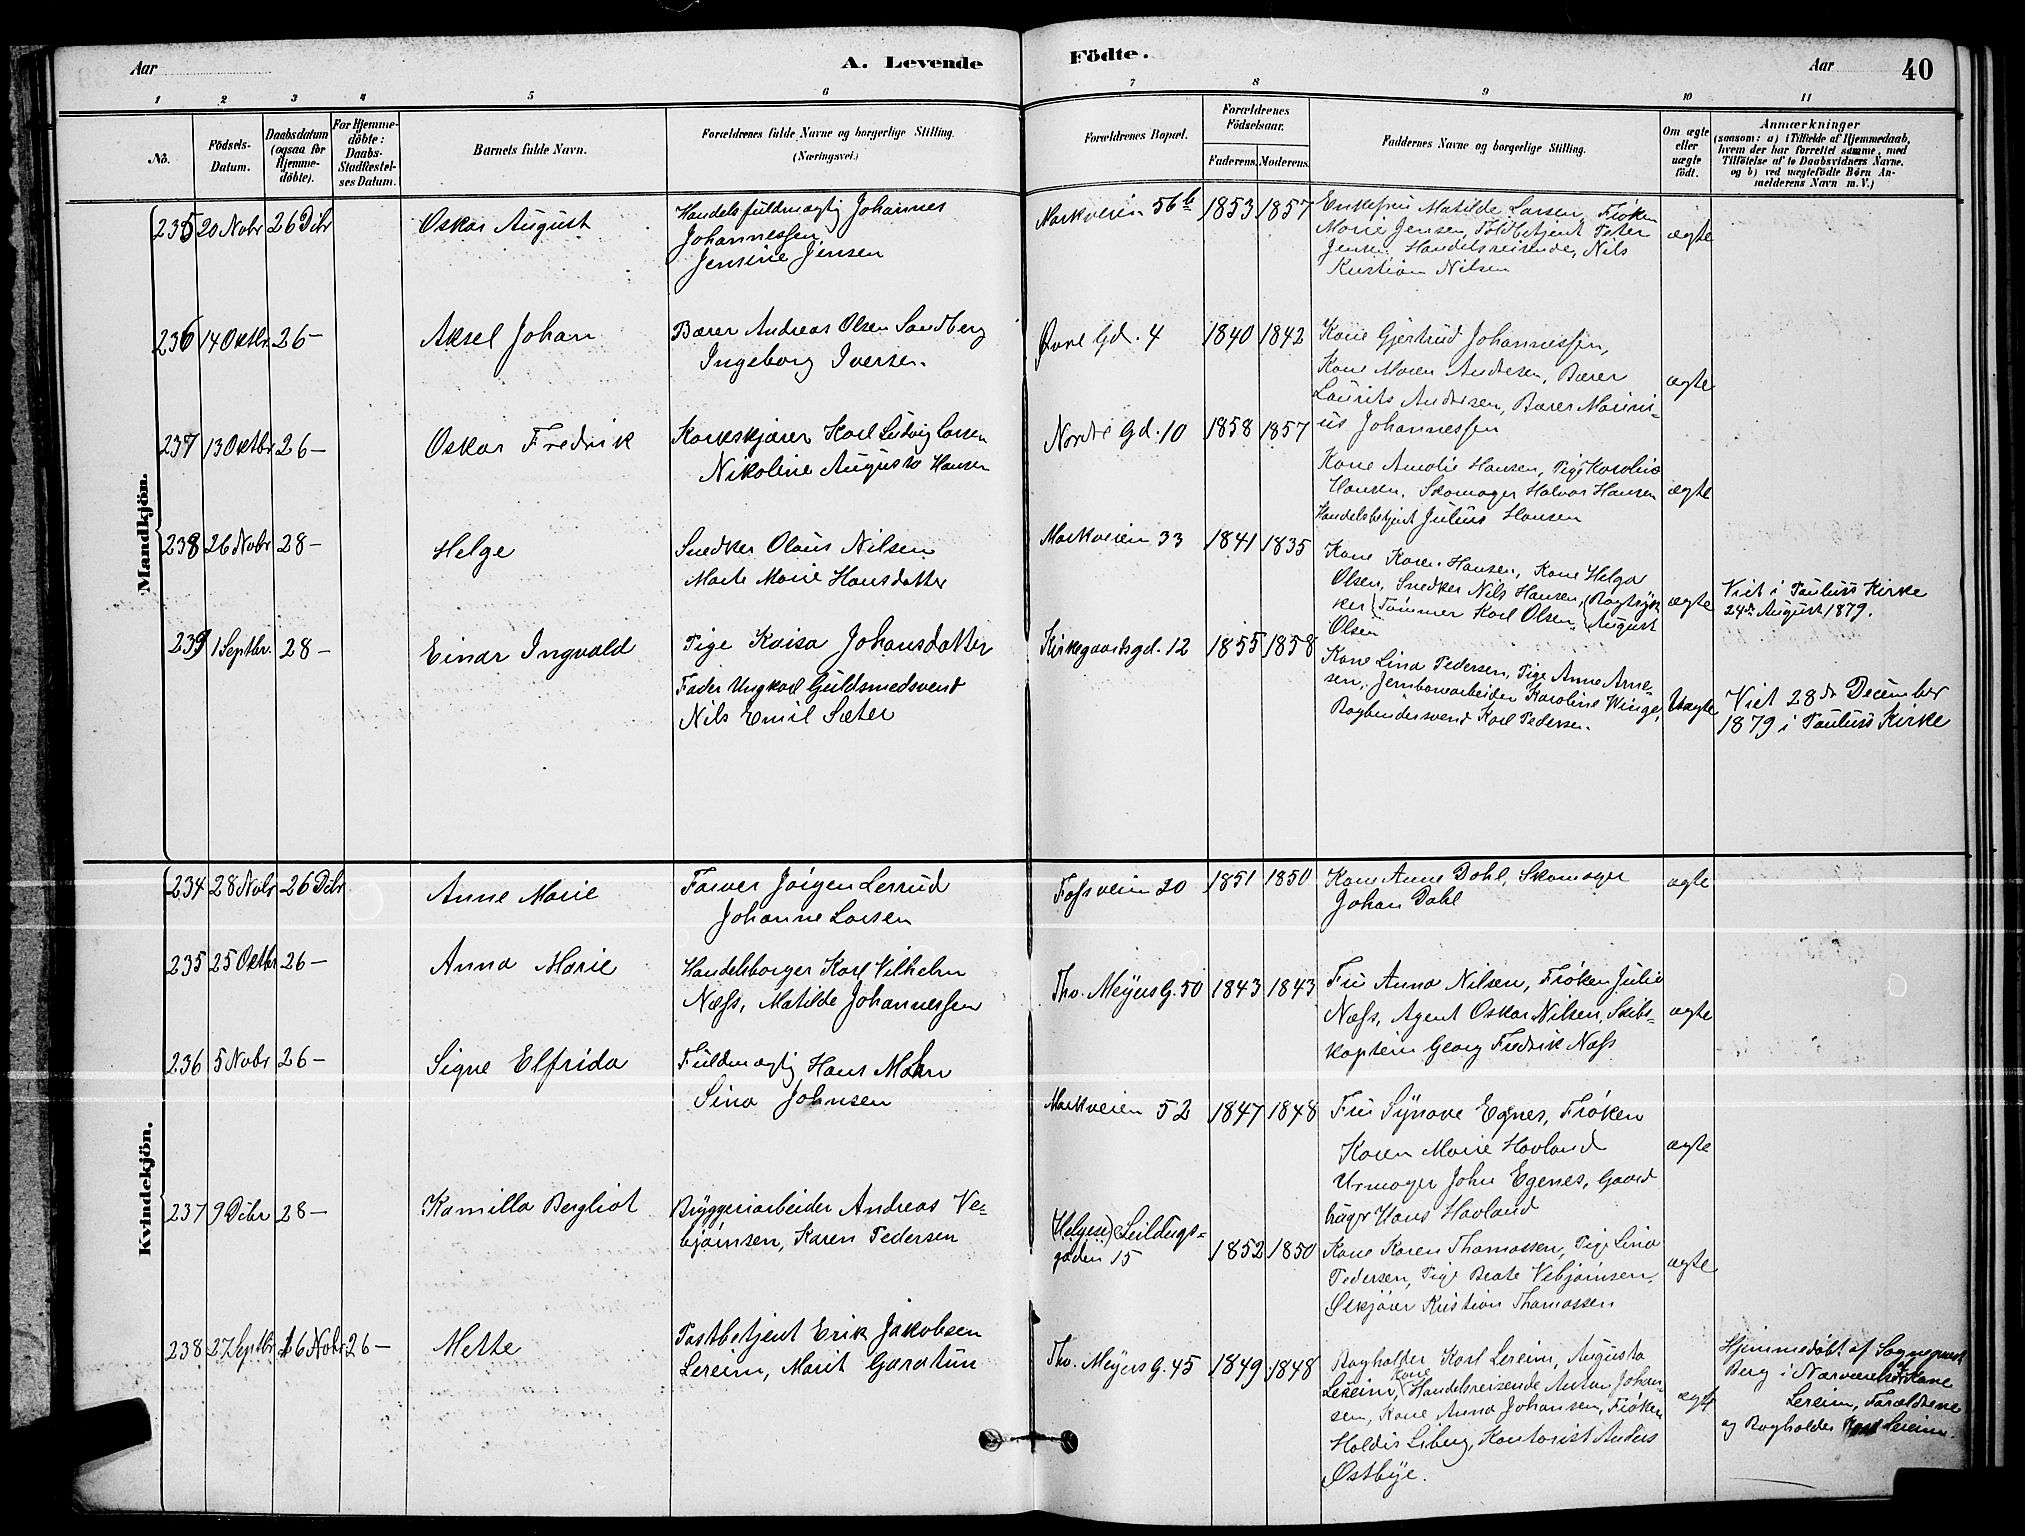 Aar
A. Levende
Födte.
Aar
40
1 2 3 4 5 6 7 8 9 10 11
No.
Födsels-
Datum.
Daabsdatum
(ogsaa for
Hjemme-
döbte).
For Hjemme-
döbte:
Daabs-
Stadfæstel-
ses Datum.
Barnets fulde Navn.
Forældrenes fulde Navne og borgerlige Stilling.
(Næringsvei.)
Forældrenes Bopæl.
Forældrenes
Födselsaar.
Faderens. Moderens.
Faddernes Navne og borgerlige Stilling.
Om ægte
eller
uægte
født.
Anmærkninger
(saasom: a) i Tilfælde af Hjemmedaab,
hvem der har forrettet samme, med
Tilföielse af to Daabsvidners Navne.
og b) ved uægtefödte Börn An-
melderens Navn m. V.)
Mandkjön.
235 20 Nobr 26 Dcbr
Oskar August
Handelsfuldmægtig Johannes
Johannessen
Jensine Jensen
Markveien 56b 1853 1857
Enkefru Matilde Larsen, Frøken
Marie Jensen, Toldbetjent Peter
Jensen, Handelsreisende, Nils
Kristian Nilsen
ægte
236 14 Oktbr. 26 —
Aksel Johan
Bærer Andreas Olsen Sandberg
Ingeborg Iversen.
Øvre Gd. 4 1840 1842
Kone Gjertrud Johannessen,
Kone Maren Andersen, Bærer
Laurits Andersen, Bærer Marini-
us Johannessen
ægte
237 13 Oktbr 26 —
Oskar Fredrik
Korkskjærer Karl Ludvig Larsen
Nikoline Augusta Hansen
Nordre Gd. 10 1858 1857
Kone Amalie Hansen, Pige Karoline
Hansen, Skomager Halvor Hansen
Handelsbetjent Julius Hansen
ægte
238 26 Nobr 28 —
Helge
Snedker Olaus Nilsen
Marte Marie Hansdatter
Markveien 33 1841 1835
Kone Karen Hansen, Kone Helga
Olsen, Snedker Nils Hansen, (Bogtryk-
ker (Tømmer Karl Olsen, August
Olsen
ægte
Viet i Paulus Kirke
24de August 1879.
239 1 Septbr. 28 —
Einar Ingvald
Pige Kaisa Johansdatter
Fader Ungkarl Guldsmedsvend
Nils Emil Sæter
Kirkegaardsgd. 12 1855 1858
Kone Lina Pedersen, Pige Anne Arne-
sen, Jernbanearbeider Karoline Winge,
Bogbindersvend Karl Pedersen.
Uægte
Viet 28de December
1879 i Paulus Kirke
Kvindekjön.
234 28 Nobr 26 Dcbr
Anne Marie
Farver Jørgen Lerrud
Johanne Larsen
Fossveien 20 1851 1850
Kone Anne Dahl, Skomager
Johan Dahl
ægte
235 25 Oktbr 26 —
Anna Marie
Handelsborger Karl Vilhelm
Næss, Matilde Johannessen
Tho. Meyers G. 50 1843 1843
Fru Anna Nilsen, Frøken Julie
Næss, Agent Oskar Nilsen, Skibs-
kaptein Georg Fredrik Næss
ægte
236 5 Nobr 26 —
Signe Elfrida
Fuldmægtig Hans Mohn
Sina Johnsen
Markveien 52 1847 1848
Fru Synøve Egnes, Frøken
Karen Marie Hovland
Urmager John Egenes, Gaard
bruger Hans Hovland
ægte
237 9 Dcbr 28 —
Kamilla Bergliot
Bryggeriarbeider Andreas Ve-
bjørnsen, Karen Pedersen
(Helgesen) Seildugs-
gaden 15 1852 1850
Kone Karen Thomassen, Pige Lina
Pedersen, Pige Beate Vebjørnsen,
Ølkjører Kristian Thomassen
ægte
238 27 Septbr 16 Nobr 26 —
Mette
Postbetjent Erik Jakobsen
Lereim, Marit Garatun
Tho. Meyers G. 45 1849 1848
Bogholder Karl Lereim, Augusta
Kone
Lereim, Handelsreisende Anton Johan-
sen, Kone Anna Johansen, Frøken
Haldis Liberg, Kontorist Anders
Østbye.
ægte
Hjemmedøbt af Sogneprest
Berg i Nærværelse af Kone
Lereim, Forældrene
og Bogholder Karl Lereim.